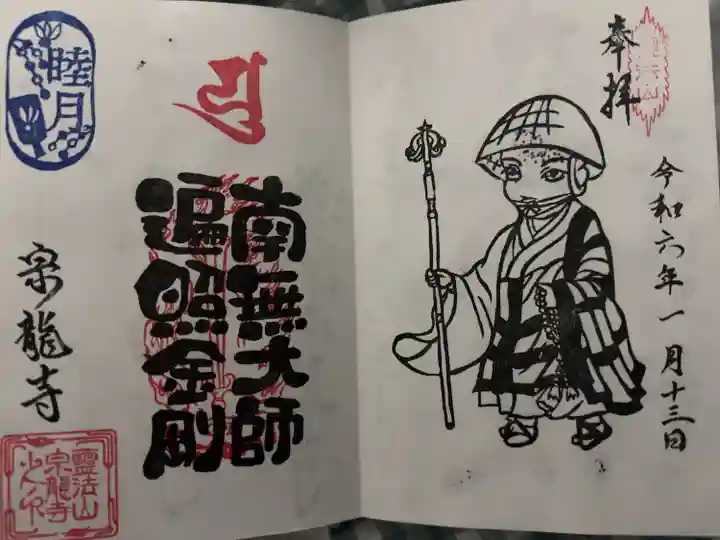 奉拝
令和六年一月十三日
睦月
南無大師
遍照金剛
宗龍寺
霊法山
宗龍寺